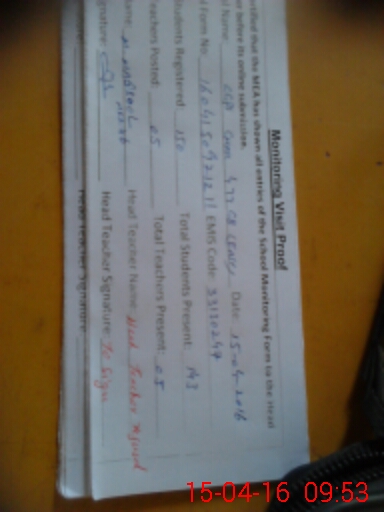 Monitoring Visit Proof
ertified that the MEA has shown all entries of the School Monitoring Form to the Head
before its online submission.
l Name: Date: 15-04-2016
l Form No: EMIS Code: 33130247
tudents Registered: 150 Total Students Present: 143
eachers Posted: 05 Total Teachers Present: 05
ame: Head Teacher Name: Head Teacher refused
gnature: Head Teacher Signature: To Sign
Head Teacher Signature:
15-04-16 09:53